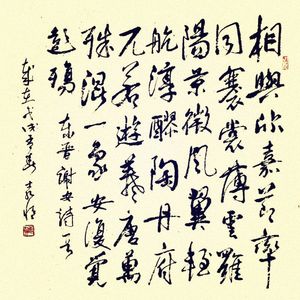 相與欣嘉節率
同褰裳薄雲羅
陽景微風翼輕
航淳醪陶丹府
兀若遊羲唐萬
殊混一象安復覺
彭殤
東晉謝安詩一首
歲在戊戌